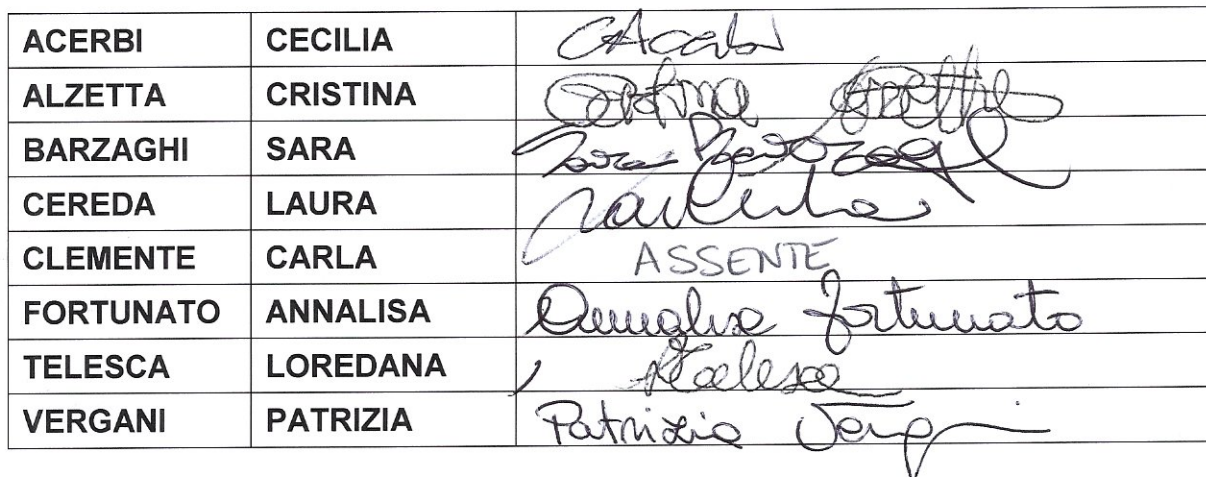 ACERBI CECILIA CAcerbi
ALZETTA CRISTINA Cristina Alzetta
BARZAGHI SARA Sara Barzaghi
CEREDA LAURA
CLEMENTE CARLA ASSENTE
FORTUNATO ANNALISA Annalisa Fortunato
TELESCA LOREDANA Telesca
VERGANI PATRIZIA Patrizia Vergani